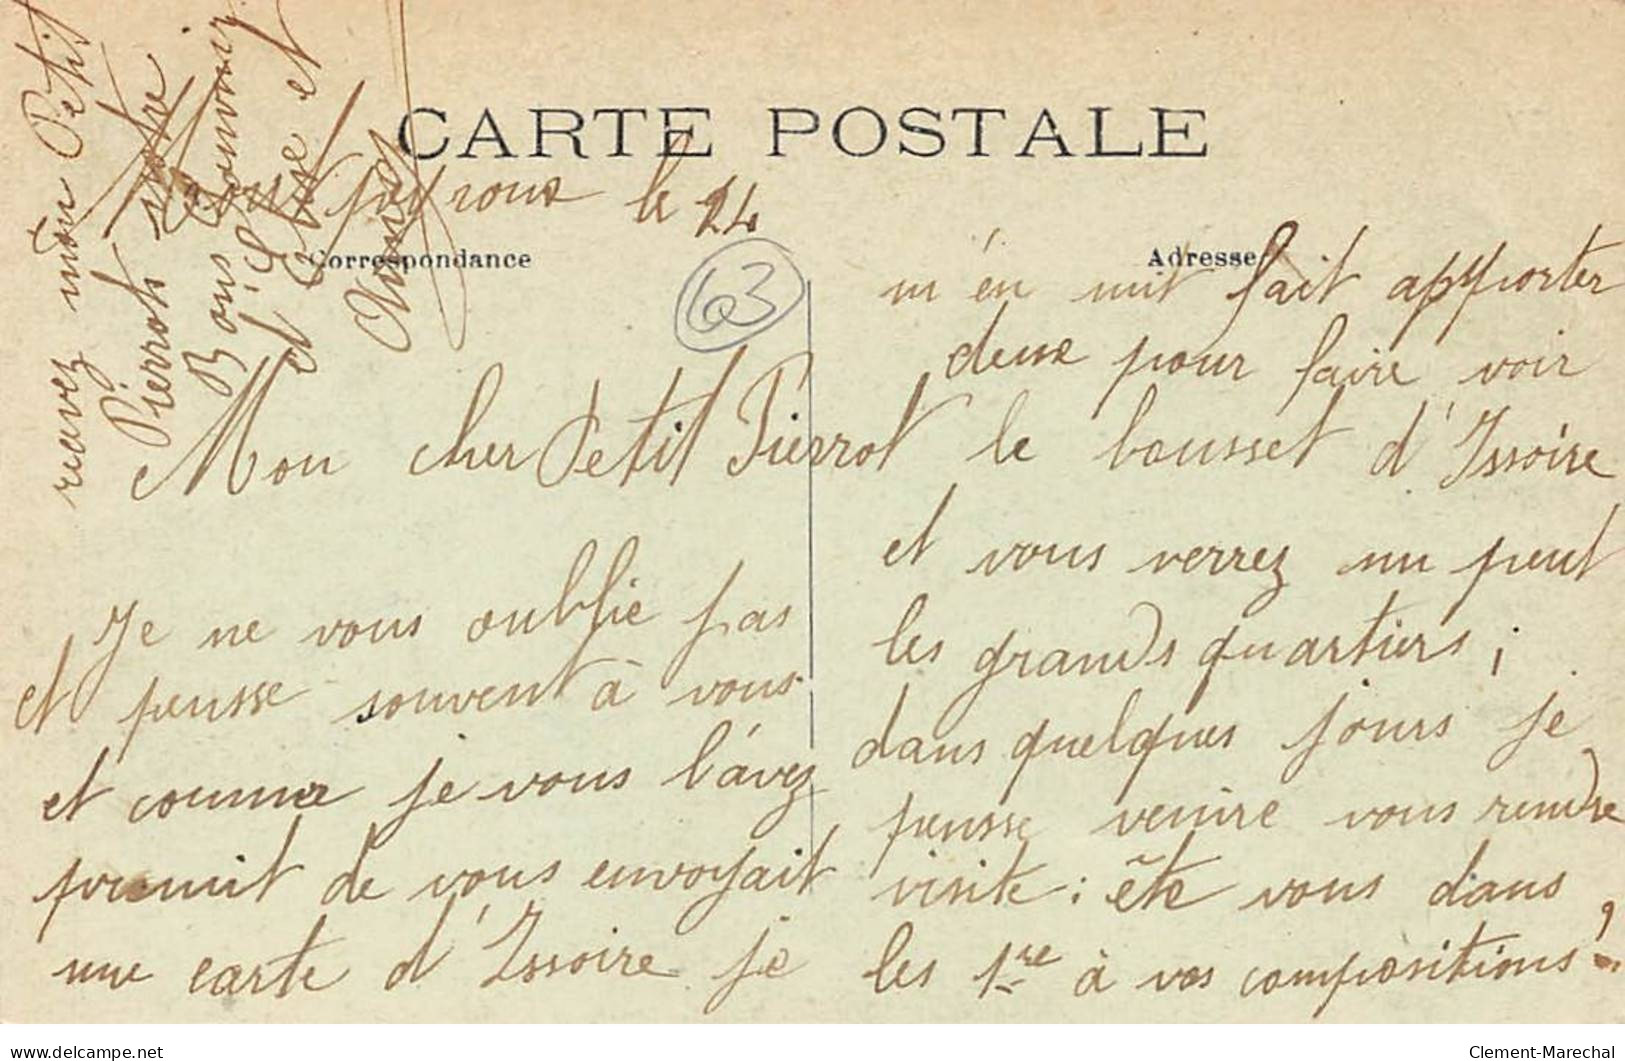 CARTE POSTALE
le 24
Correspondance
Adresse
63
Mon cher Petit Pierrot
Je ne vous oublie pas
et pensse souvent à vous
et comme je vous l'avez
promit de vous envoyait
une carte d'Issoire je
m'en nuit fait apporter
deux pour faire voir
le bousset d'Issoire
et vous verrez un peut
les grands quartiers ;
dans quelques jours je
pensse venire vous rendre
visite : ête vous dans
les 1re à vos compositions ?
recevez mon Petit
Pierrot notre
Bons Souvenir
d'Elise et
delcampe.net
Clement-Marechal